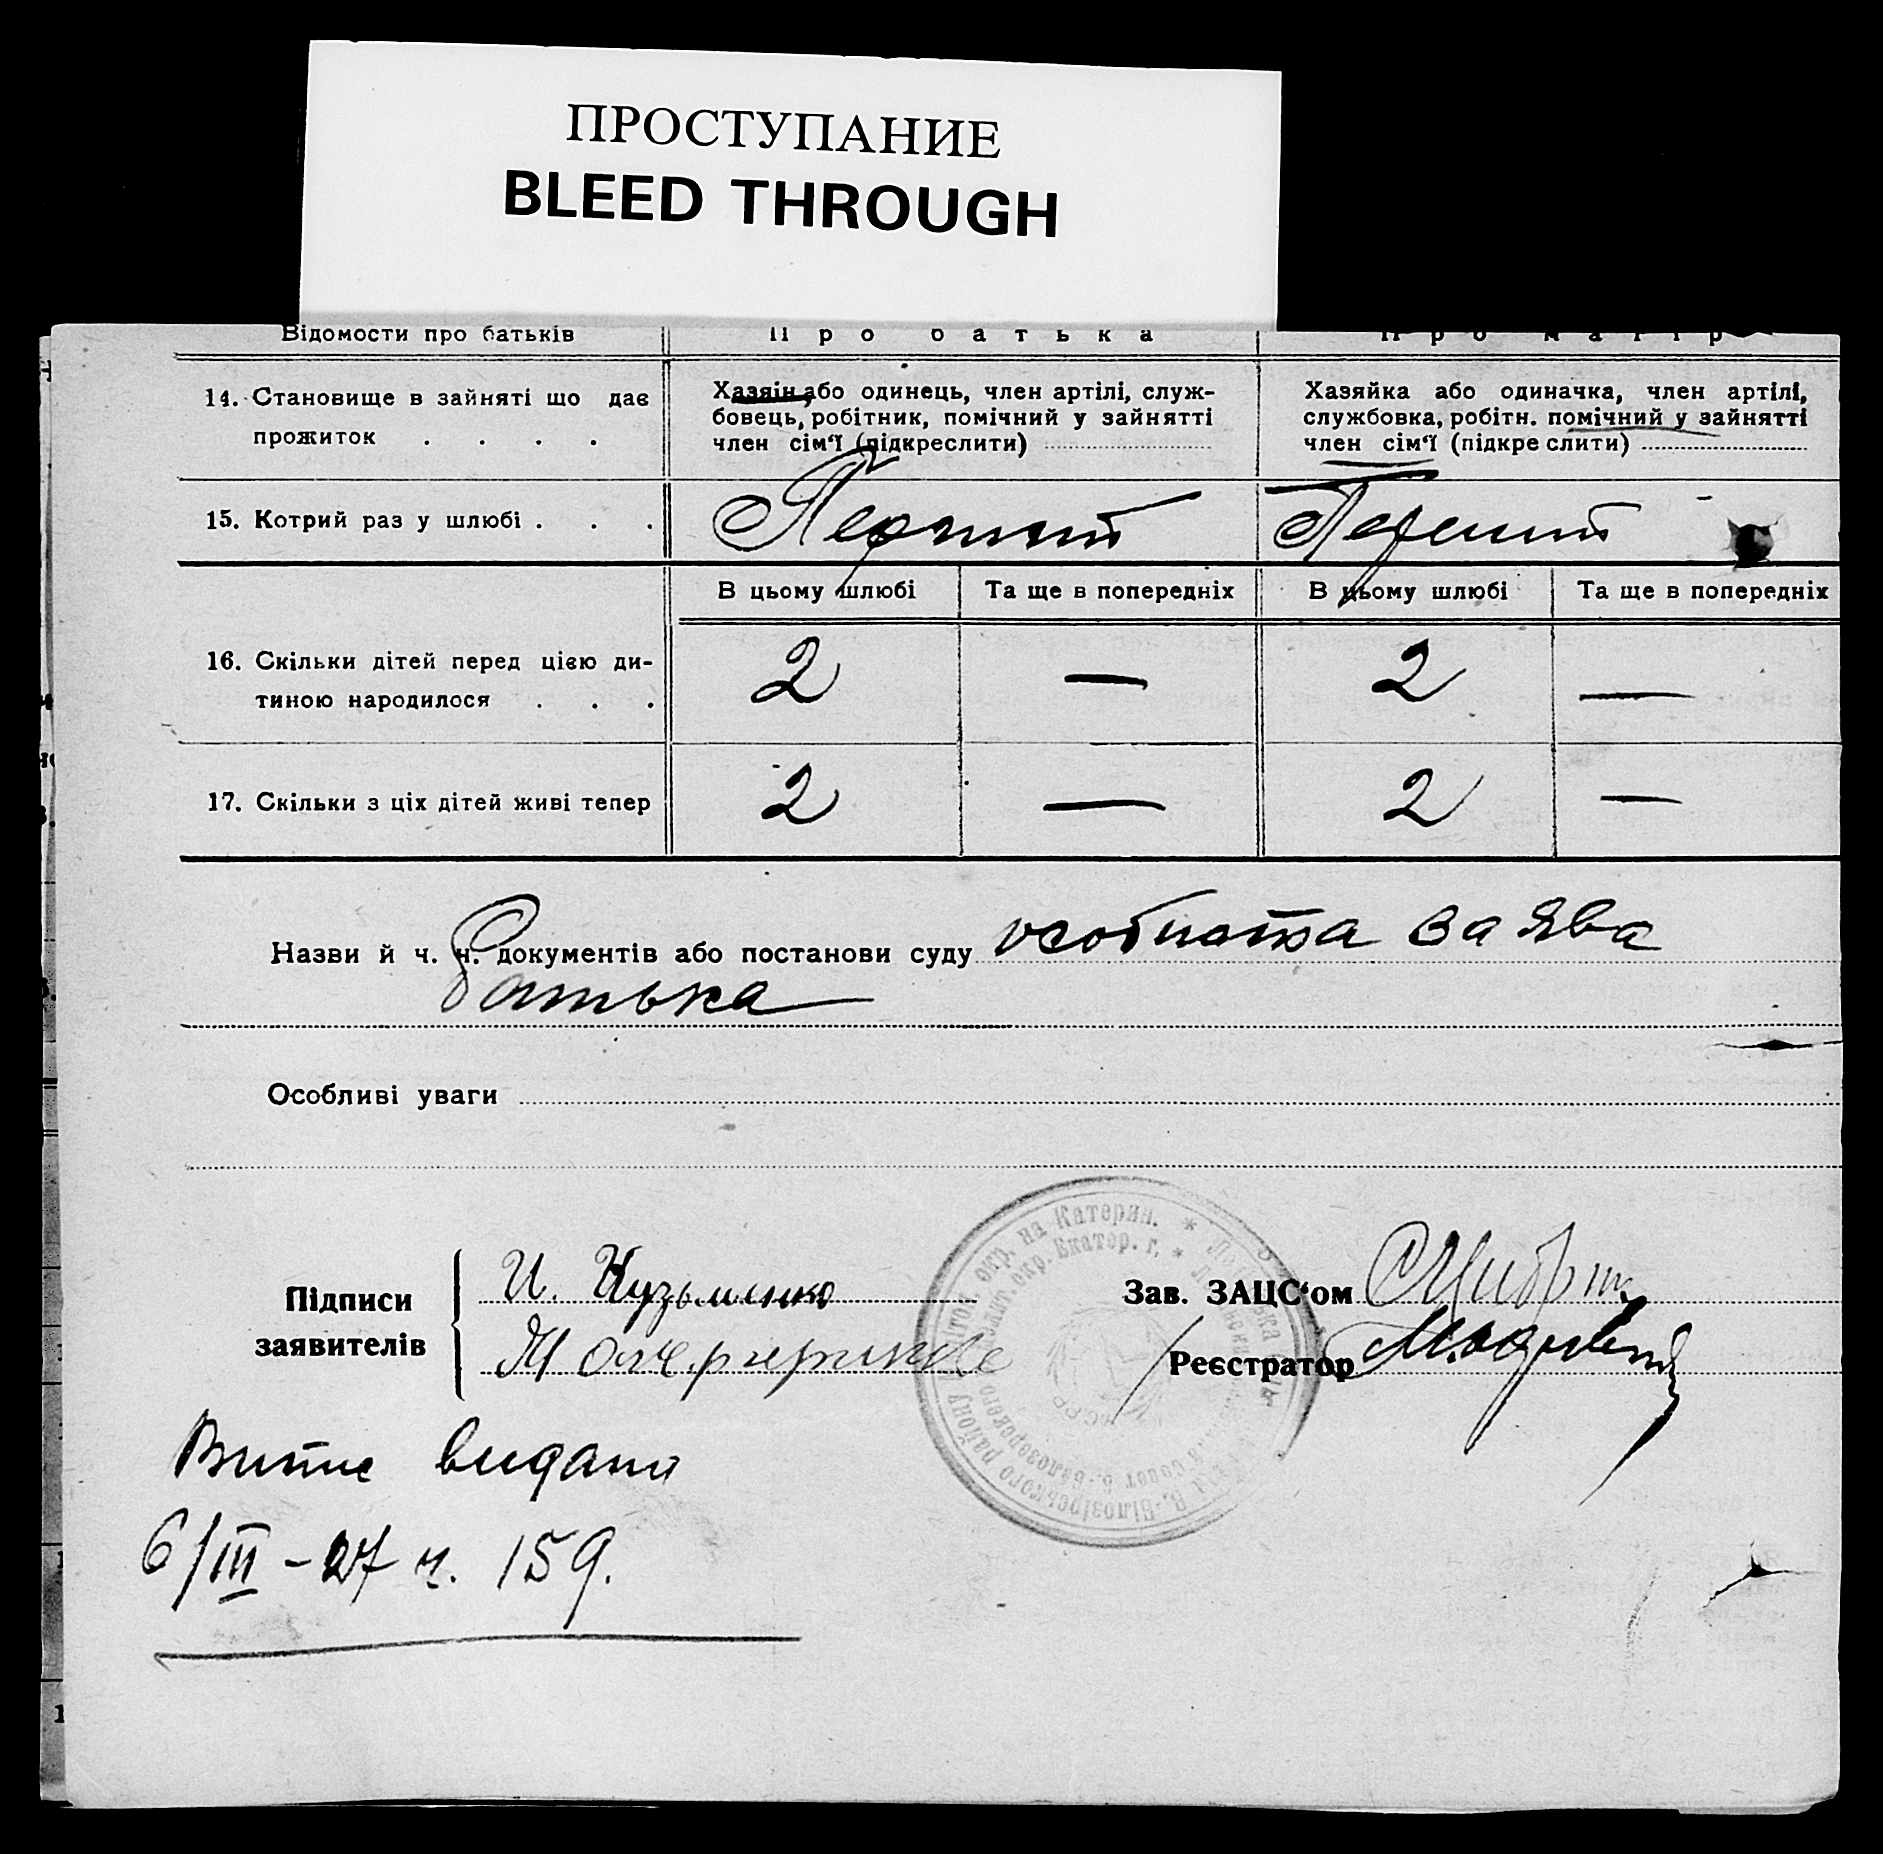 ПРОСТУПАНИЕ
BLEED THROUGH
Відомости про батьків
Про батька
Про матір
14. Становище в зайняті що дає
прожиток . . . .
Хазяін або одинець, член артілі, служ-
бовець, робітник, помічний у зайнятті
член сім'ї (підкреслити)
Хазяйка або одиначка, член артілі,
службовка, робітн. помічний у зайнятті
член сім'ї (підкре слити)
15. Котрий раз у шлюбі . . .
Перший
Перший
В цьому шлюбі
Та ще в попередніх
В цьому шлюбі
Та ще в попередніх
16. Скільки дітей перед цією ди-
тиною народилося . . .
2 — 2 —
17. Скільки з ціх дітей живі тепер
2 — 2 —
Назви й ч. ч. документів або постанови суду особиста заява
батька
Особливі уваги
Підписи
заявителів
И. Кузьменко
Зав. ЗАЦС'ом
Реєстратор
окр. на Катерин. *
окр. Екатер. г. *
В.-Білозірського району
Б.-Белозерского
Витис видани
6/III – 27 ч. 159.